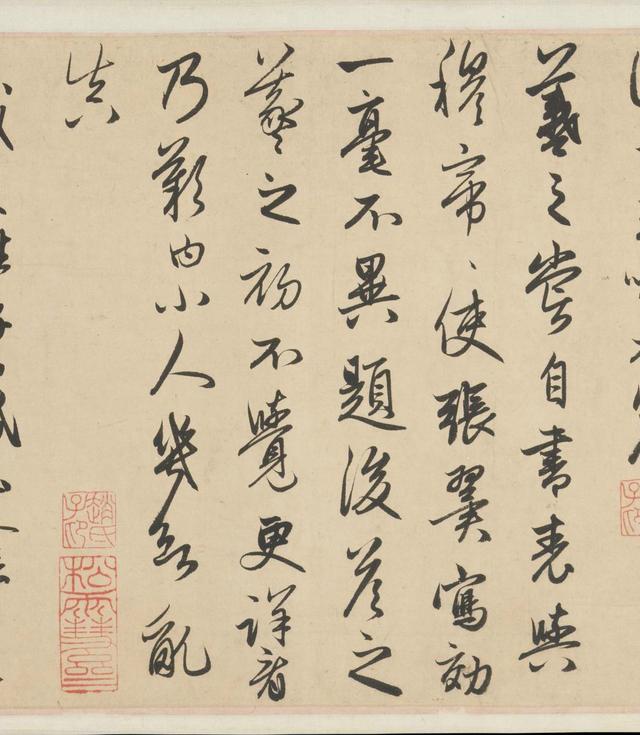 羲之嘗自書表與
穆帝〻使張翼寫効
一毫不異題後答之
羲之初不覺更詳看
乃歎曰小人幾欲亂
真
趙氏子昂
松雪齋